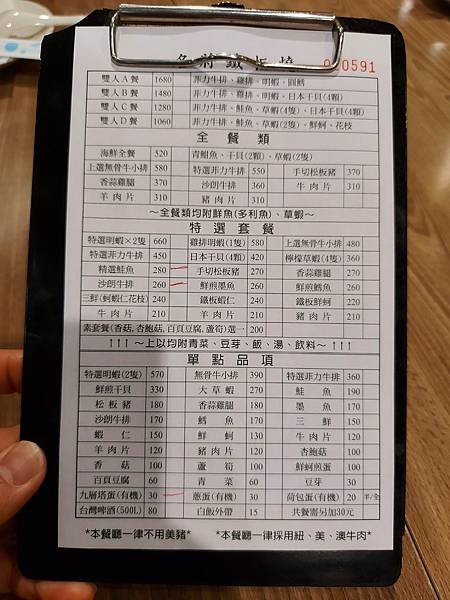 名將鐵板燒 000591
雙人A餐 1680 菲力牛排、雞排、明蝦、圓鱈
雙人B餐 1480 菲力牛排、雞排、明蝦、日本干貝(4顆)
雙人C餐 1280 菲力牛排、鮭魚、草蝦(4隻)、日本干貝(4顆)
雙人D餐 1060 菲力牛排、鮭魚、草蝦(2隻)、鮮蚵、花枝
全餐類
海鮮全餐 520 青魽魚、干貝(2顆)、草蝦(2隻)
上選無骨牛小排 580 特選菲力牛排 550 手切松板豬 370
香蒜雞腿 370 沙朗牛排 360 牛肉片 310
羊肉片 310 豬肉片 310
～全餐類均附鮮魚(多利魚)、草蝦～
特選套餐
特選明蝦×2隻 660 雞排明蝦(1隻) 580 上選無骨牛小排 480
特選菲力牛排 450 日本干貝(4顆) 420 檸檬草蝦(4隻) 360
精選鮭魚 280 手切松板豬 270 香蒜雞腿 270
沙朗牛排 260 鮮煎墨魚 260 鮮煎鱈魚 260
三鮮(蚵蝦仁花枝) 240 鐵板蝦仁 240 鐵板鮮蚵 220
牛肉片 210 羊肉片 210 豬肉片 210
素套餐(香菇,杏鮑菇,百頁豆腐,蘆筍)選一 200
↑↑↑～以上均附青菜、豆芽、飯、湯、飲料～↑↑↑
單點品項
特選明蝦(2隻) 570 無骨牛小排 390 特選菲力牛排 360
鮮煎干貝 330 大草蝦 270 鮭魚 190
松板豬 180 香蒜雞腿 180 墨魚 170
沙朗牛排 170 鱈魚 170 三鮮 150
蝦仁 150 鮮蚵 130 牛肉片 120
羊肉片 120 豬肉片 120 杏鮑菇 100
香菇 100 蘆筍 100 鮮蚵煎蛋 100
百頁豆腐 60 青菜 60 豆芽 30
九層塔蛋(有機) 30 蔥蛋(有機) 30 荷包蛋(有機) 20 半/全
台灣啤酒(500L) 80 白飯外帶 15 共餐需另加30元
*本餐廳一律不用美豬* *本餐廳一律採用紐、美、澳牛肉*